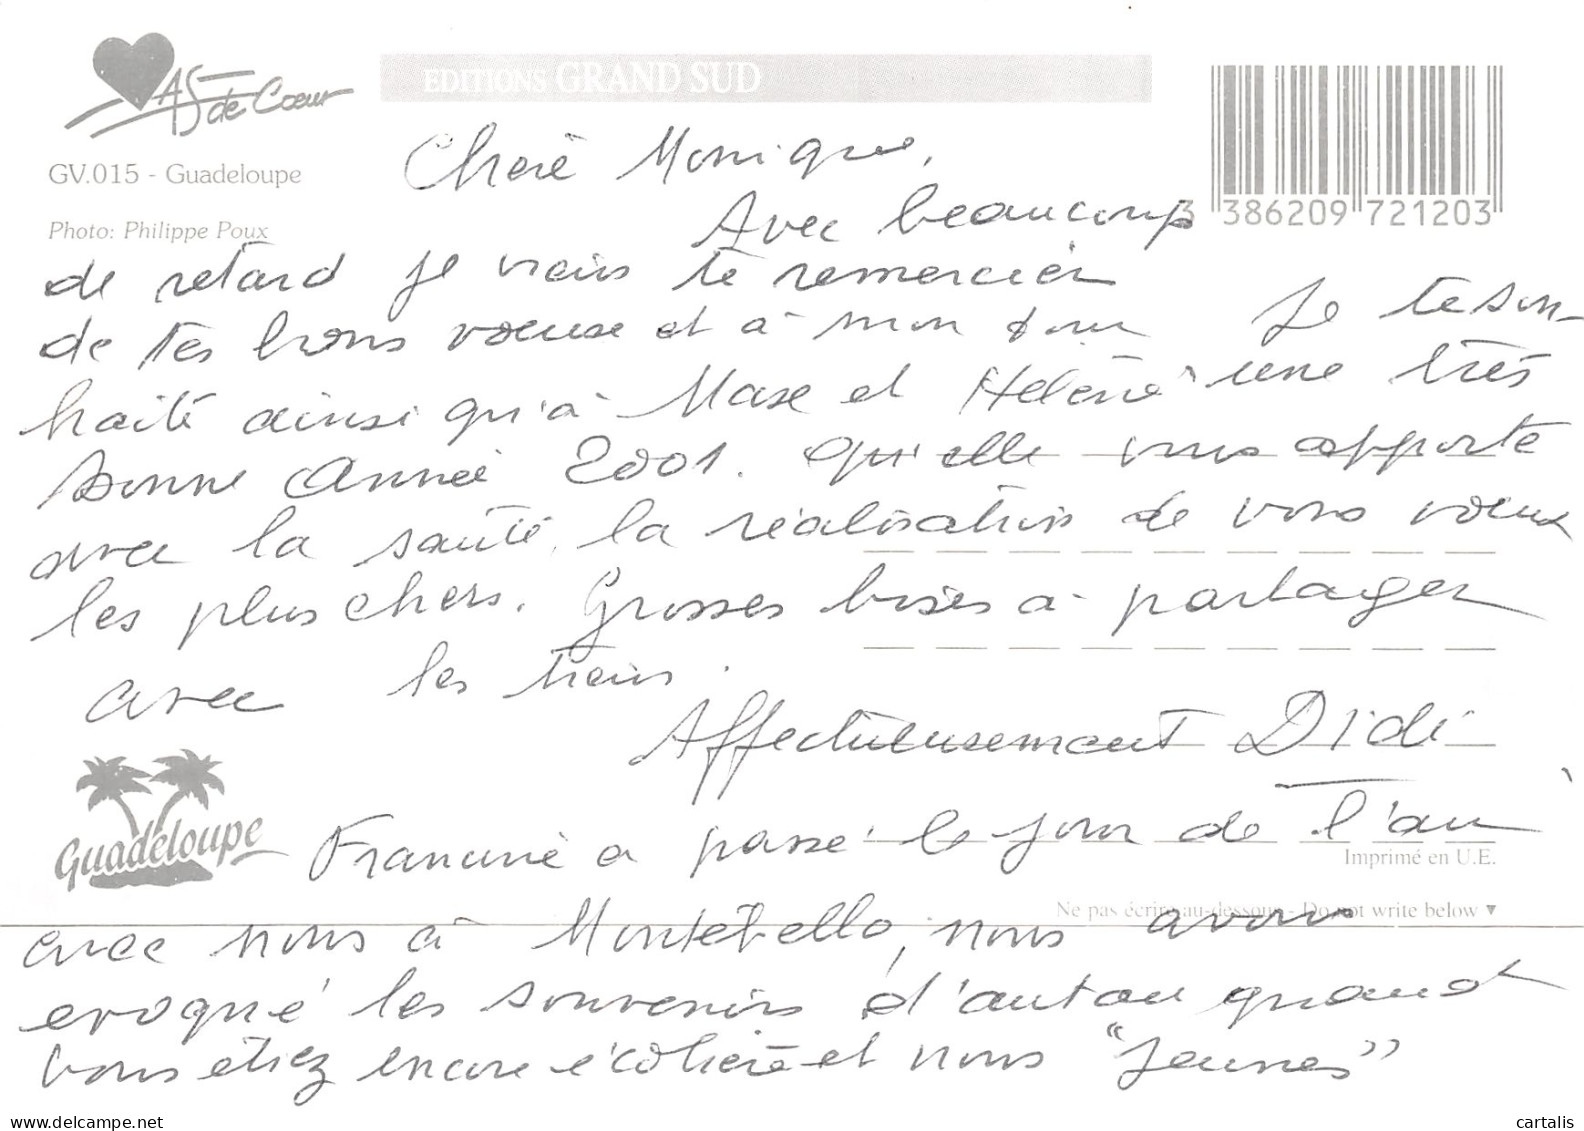 As de Cœur
EDITIONS GRAND SUD
GV.015 - Guadeloupe
Photo: Philippe Poux
3 386209 721203
Chère Monique,
Avec beaucoup
de retard je viens te remercier
de tes bons voeux et à mon tour je te sou-
haite ainsi qu'à Max et Hélène une très
bonne Année 2001. Qu'elle vous apporte
avec la santé, la réalisation de vos voeux
les plus chers. Grosses bises à partager
avec les tiens.
Affectueusement Didi
Guadeloupe
Francine a passé le jour de l'an
Imprimé en U.E.
Ne pas écrire au-dessous - Do not write below ▼
avec nous à Montebello, nous avons
evoqué les souvenirs d'antan quand
vous étiez encore écolière et nous "Jeunes"
delcampe.net
cartalis